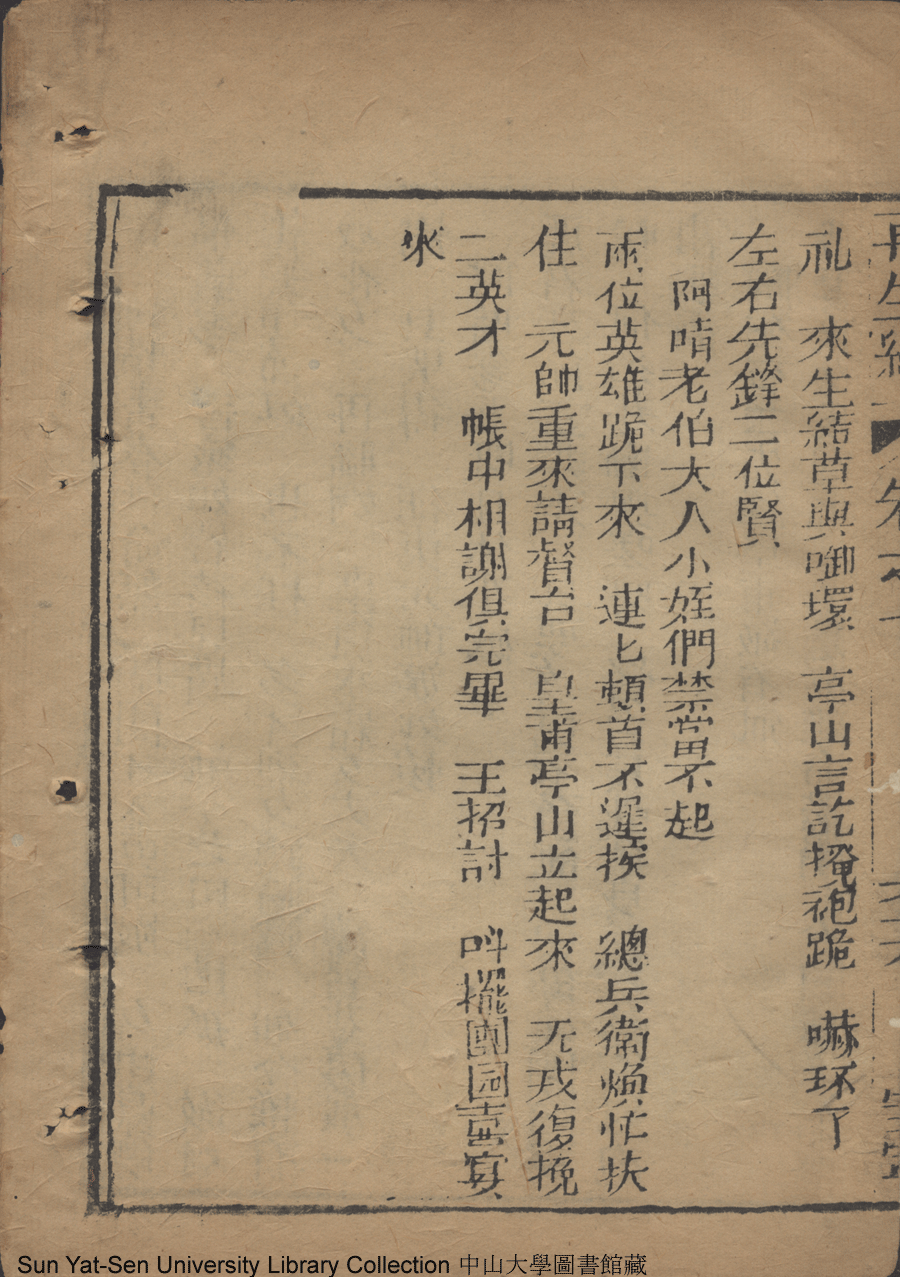 礼　來生結草與啣環　亭山言訖掩袍跪　嚇环了
左右先鋒二位賢
阿唷老伯大人小姪們禁當不起
兩位英雄跪下來　連匕頓首不遲挨　總兵衛煥忙扶
住　元帥重來請督台　皇甫亭山立起來　无戎復挽
二英才　帳中相謝俱完畢　王招討　呌擺團园喜宴
來
Sun Yat-Sen University Library Collection 中山大學圖書館藏